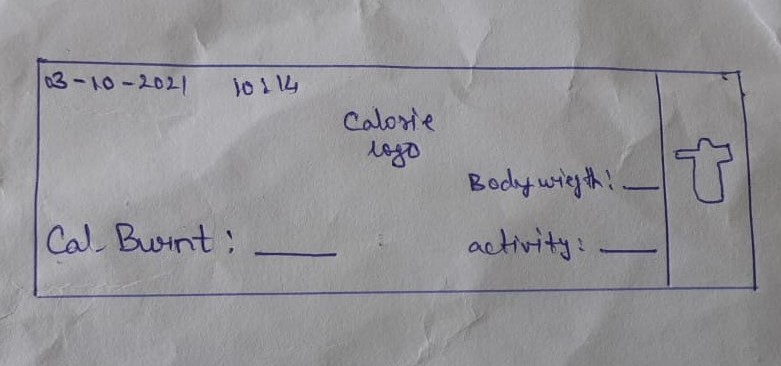 03-10-2021 10:14
Calorie
logo
Body wiegth: __
Cal. Burnt: ____
activity: ___